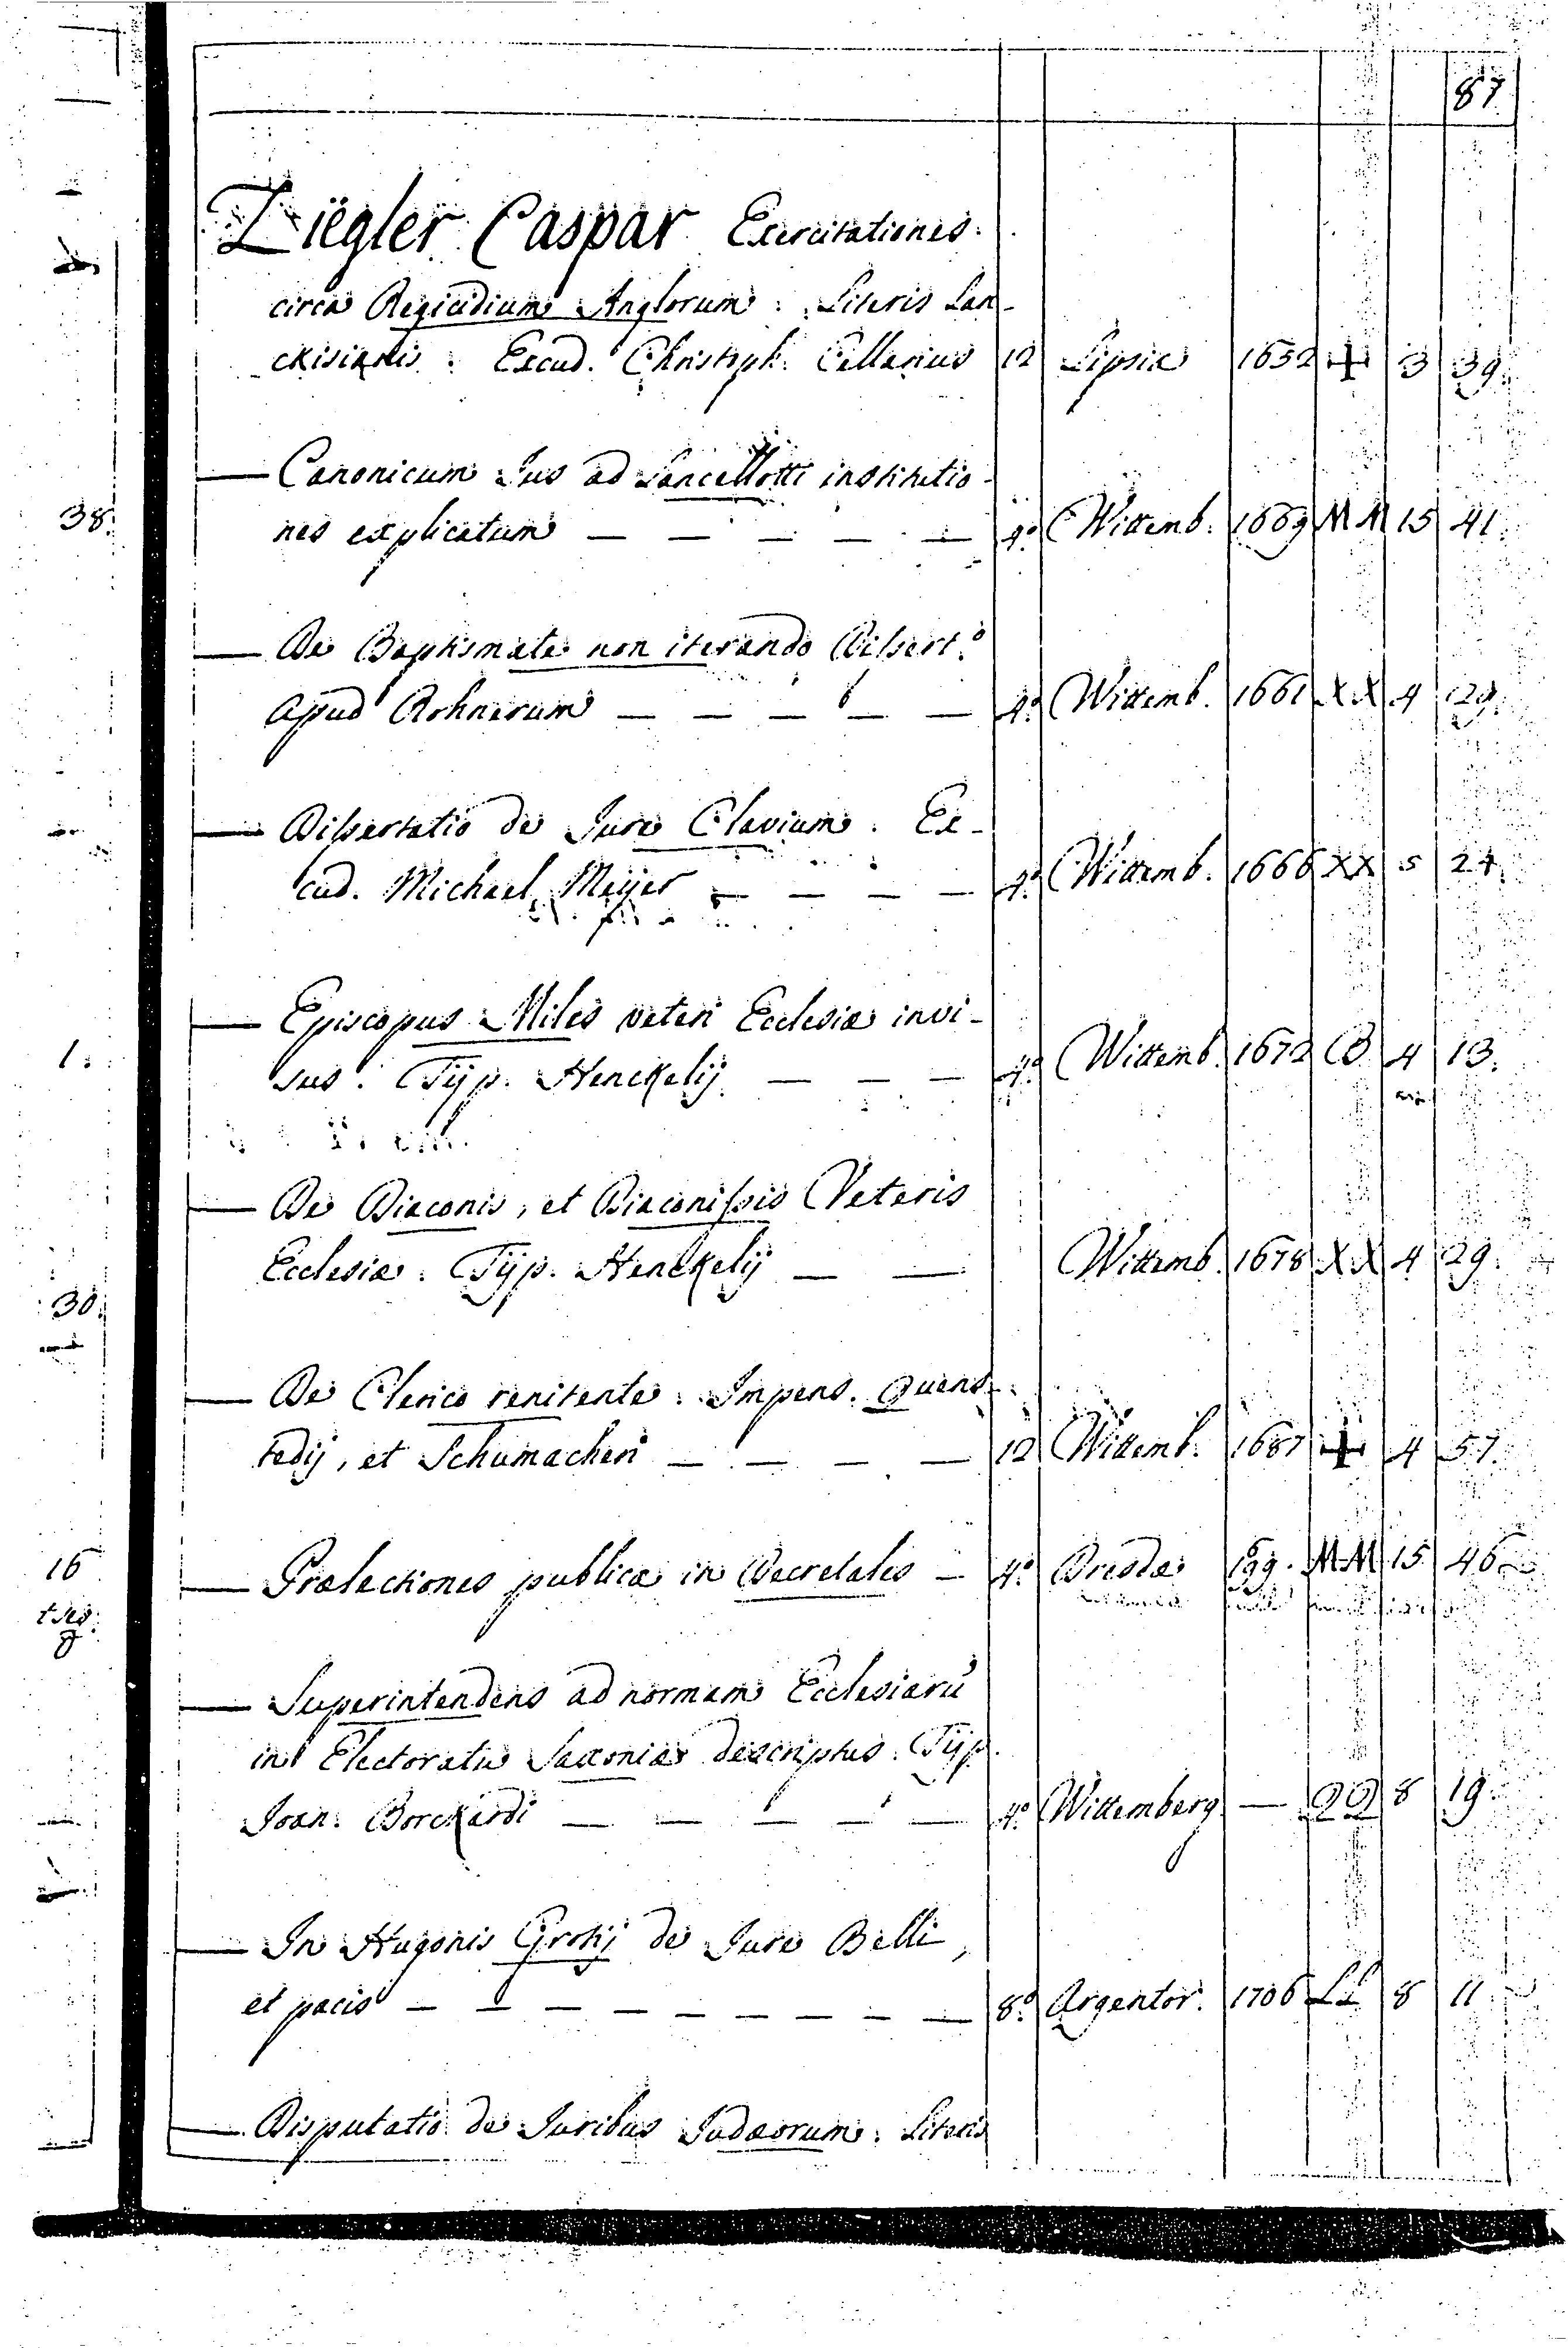 87
Ziegler Caspar Exercitationes
circa Regicidium Anglorum. Literis Lan-
ckisianis. Excud. Christoph. Cellarius 12 Lipsiæ 1652 3 39.
— Canonicum Jus ad Lancellotti institutio-
nes explicatum — — — — — 4.° Wittemb. 1669 MM 15 41.
38.
— De Baptismate non iterando Dissert.°
apud Rohnerum — — — — — 4.° Wittemb. 1661 XX 4 29.
— Dissertatio de Jure Clavium. Ex-
cud. Michael Meyer — — — — 4.° Wittemb. 1666 XX 5 24.
— Episcopus Miles veteri Ecclesiæ invi-
sus. Typ. Henckelij. — — — 4.° Wittemb. 1672 B 4 13.
1.
— De Diaconis, et Diaconissis Veteris
Ecclesiæ. Typ. Henckelij — — Wittemb. 1678 XX 4 29.
30.
— De Clerico renitente. Impens. Quens-
tedij, et Schumacheri — — — — 12 Wittemb. 1687 4 57.
— Prælectiones publicæ in Decretales — 4.° Dresdæ 699. MM 15 46
16
— Superintendens ad normam Ecclesiarũ
in Electoratu Saxoniæ descriptus. Typ.
Joan. Borckardi — — — — — 4.° Wittemberg — QQ 8 19.
— In Hugonis Grotij de Jure Belli,
et pacis — — — — — — — — 8.° Argentor. 1706 LL 8 11.
— Disputatio de Juribus Judæorum. Literis